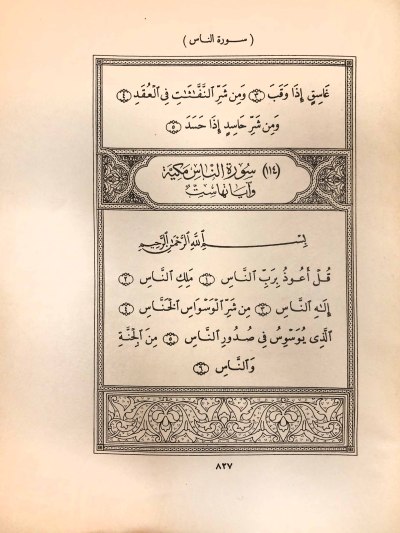 ( سورة الناس )
غَاسِقٍ إِذَا وَقَبَ ٣ وَمِن شَرِّ ٱلنَّفَّـٰثَـٰتِ فِى ٱلْعُقَدِ ٤
وَمِن شَرِّ حَاسِدٍ إِذَا حَسَدَ ٥
(١١٤) سورة الناس مكية
وآياتها ست
بِسْمِ ٱللَّهِ ٱلرَّحْمَـٰنِ ٱلرَّحِيمِ
قُلْ أَعُوذُ بِرَبِّ ٱلنَّاسِ ١ مَلِكِ ٱلنَّاسِ ٢
إِلَـٰهِ ٱلنَّاسِ ٣ مِن شَرِّ ٱلْوَسْوَاسِ ٱلْخَنَّاسِ ٤
ٱلَّذِى يُوَسْوِسُ فِى صُدُورِ ٱلنَّاسِ ٥ مِنَ ٱلْجِنَّةِ
وَٱلنَّاسِ ٦
٨٢٧